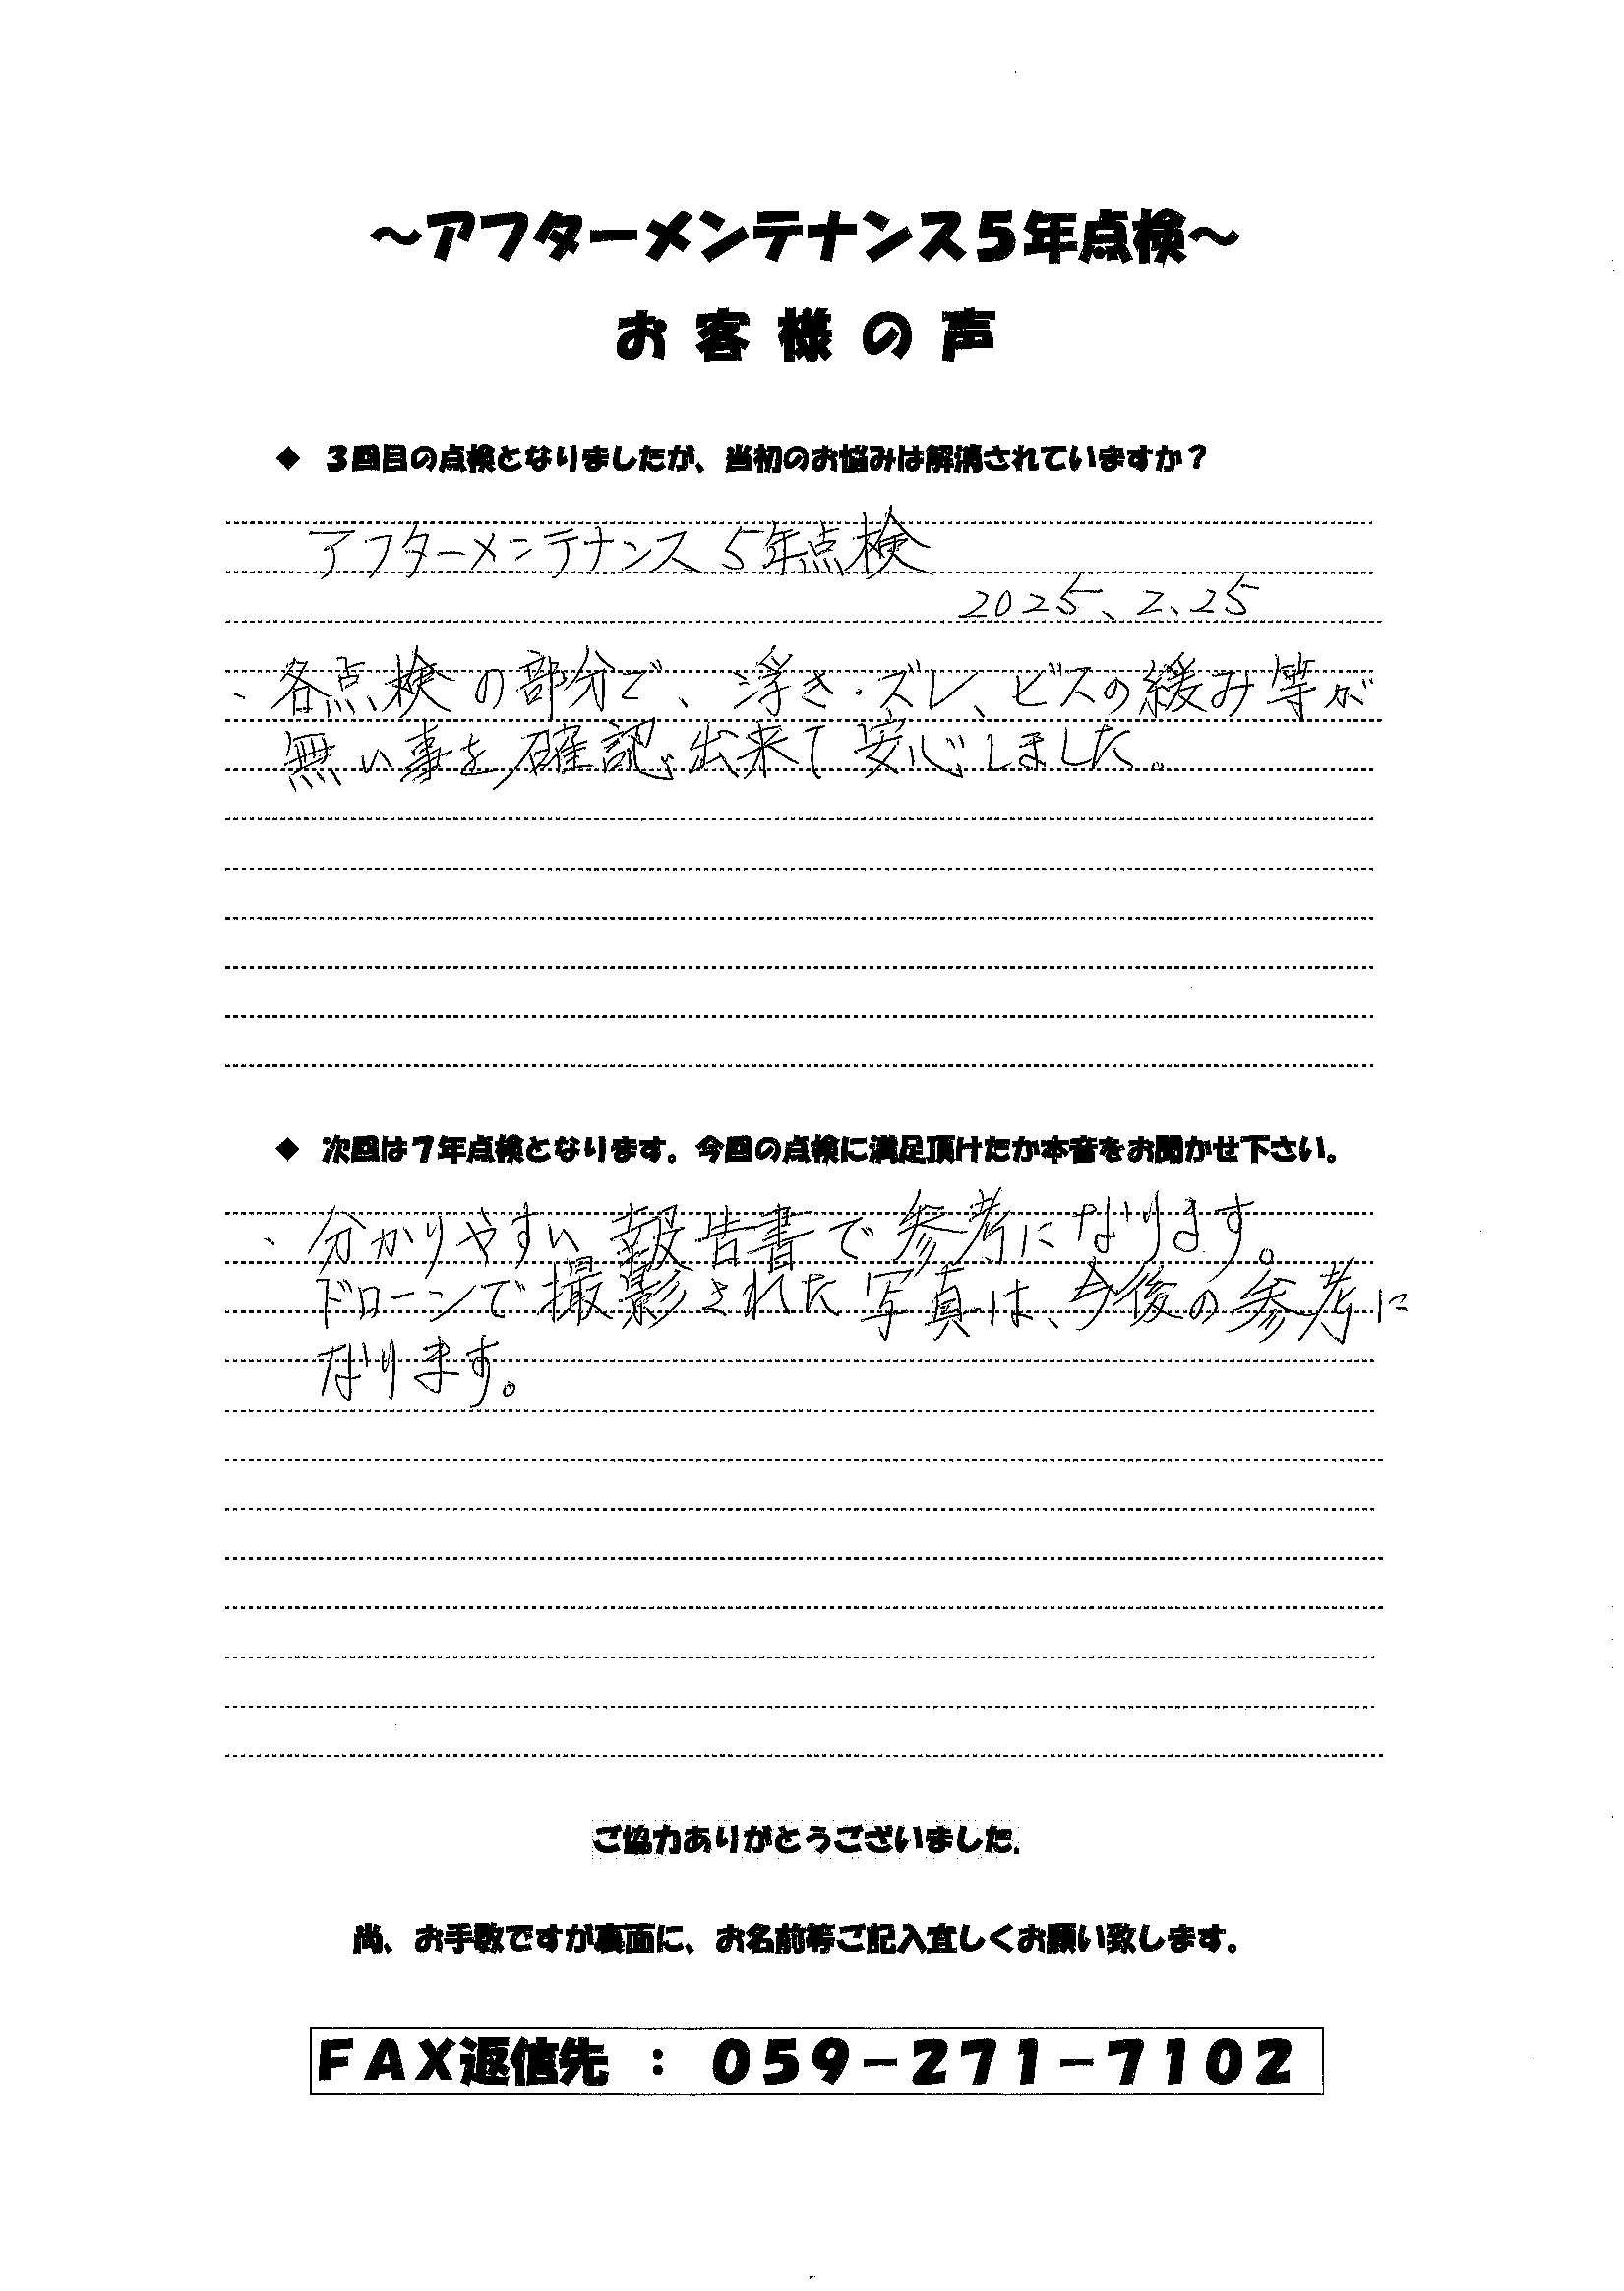 ～アフターメンテナンス５年点検～
お客様の声
◆ ３回目の点検となりましたが、当初のお悩みは解消されていますか？
アフターメンテナンス 5年点検
2025、2、25
、各点検の部分で、浮き・ズレ、ビスの緩み等が
無い事を確認出来て安心しました。
◆ 次回は７年点検となります。今回の点検に満足頂けたか本音をお聞かせ下さい。
、分かりやすい報告書で参考になります。
ドローンで撮影された写真は、今後の参考に
なります。
ご協力ありがとうございました．
尚、お手数ですが裏面に、お名前等ご記入宜しくお願い致します。
ＦＡＸ返信先 ： ０５９－２７１－７１０２